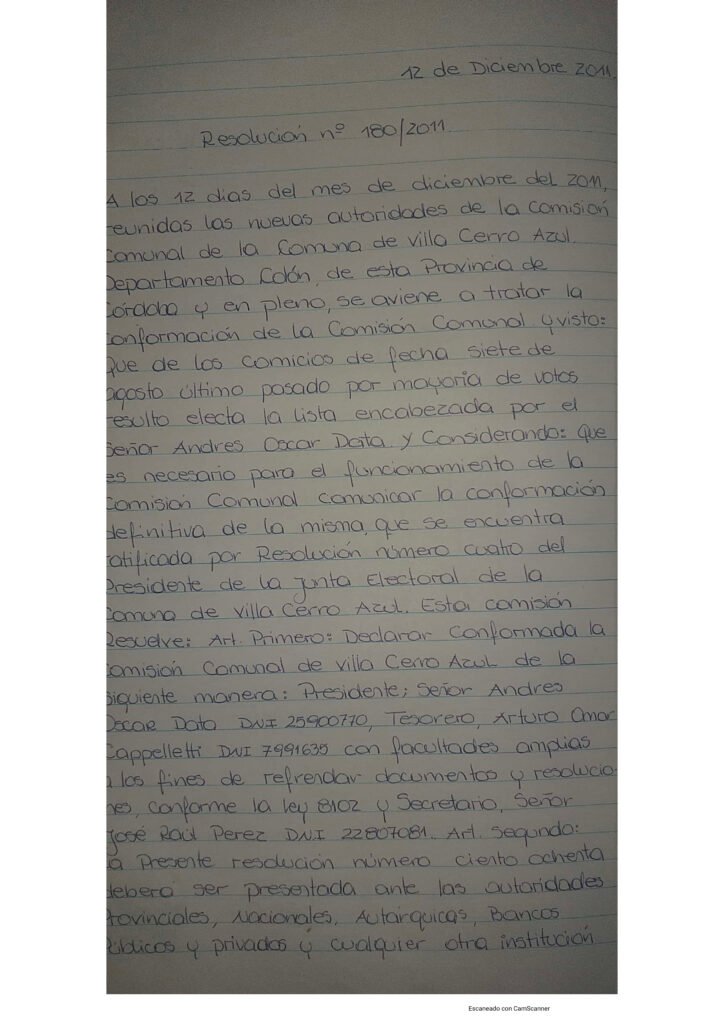 12 de Diciembre 2011.
Resolución nº 180/2011.
A los 12 dias del mes de diciembre del 2011,
reunidas las nuevas autoridades de la Comisión
Comunal de la Comuna de Villa Cerro Azul.
Departamento Colón, de esta Provincia de
Córdoba y en pleno, se aviene a tratar la
conformación de la Comisión Comunal y visto:
que de los comicios de fecha siete de
agosto último pasado por mayoría de votos
resulto electa la lista encabezada por el
Señor Andres Oscar Data y Considerando: que
es necesario para el funcionamiento de la
Comisión Comunal comunicar la conformación
definitiva de la misma, que se encuentra
ratificada por Resolución número cuatro del
Presidente de la Junta Electoral de la
Comuna de Villa Cerro Azul. Esta comisión
Resuelve: Art. Primero: Declarar conformada la
Comisión Comunal de Villa Cerro Azul de la
siguiente manera: Presidente; Señor Andres
Oscar Dato DNI 25900770, Tesorero, Arturo Omar
Cappelletti DNI 7991635 con facultades amplias
a los fines de refrendar documentos y resolucio-
nes, conforme la ley 8102 y Secretario, Señor
José Raúl Perez DNI 22807081. Art. Segundo:
La Presente resolución número ciento ochenta
debera ser presentada ante las autoridades
Provinciales, Nacionales, Autarquicas, Bancos
Públicos y privados y cualquier otra institución
Escaneado con CamScanner